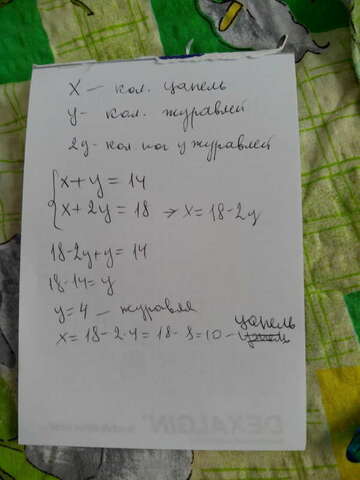 x – кол. цапель
y – кол. журавлей
2y – кол ног у журавлей
x + y = 14
x + 2y = 18 → x = 18 - 2y
18 - 2y + y = 14
18 - 14 = y
y = 4 – журавля
x = 18 - 2 · 4 = 18 - 8 = 10 – цапель
DEXALGIN